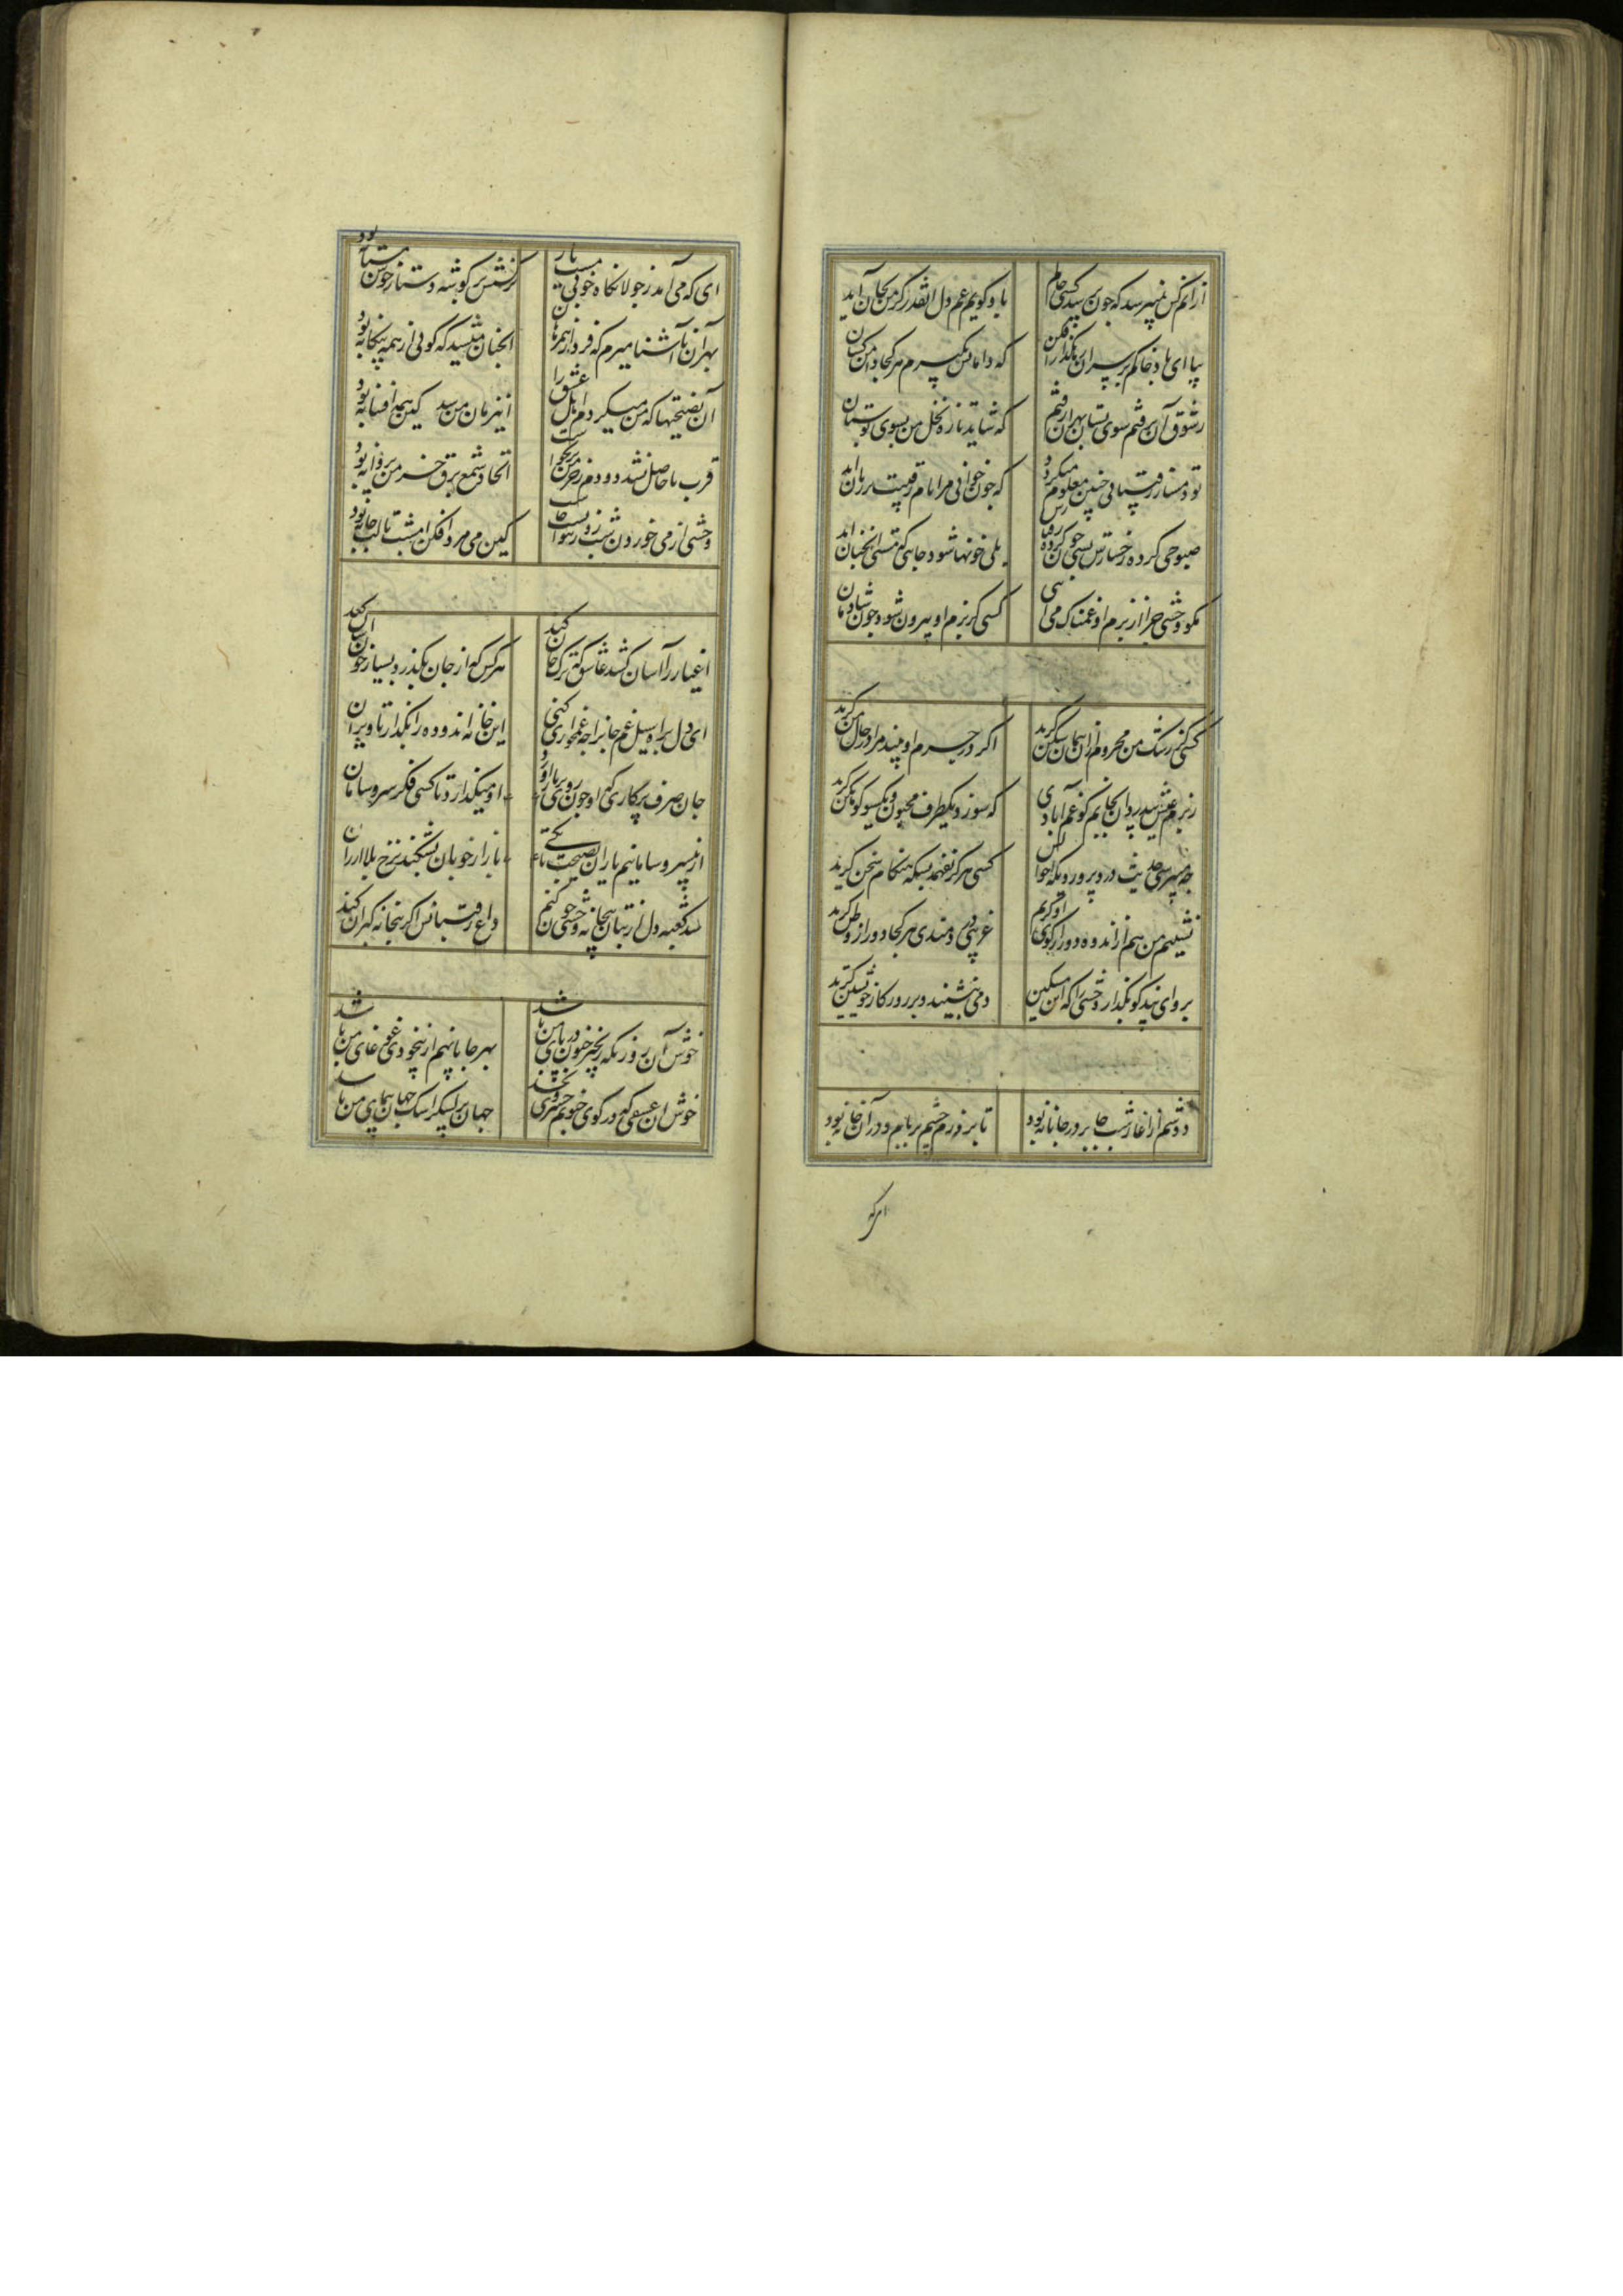 ازانم کس نمیپرسد که چون پرسد کسی حالم
باو گویم غم دل انقدر کز من بجان آید
بیا ای باد خاکم بر سر ان رهگذار افکن
که دامانش بگیرم هر کجا دامن کشان
ز شوق آن بر فتم سوی بستان بهر ان رفتم
که شاید تازه نخل من بسوی بوستان
تو دمساز رقیبانی چنین معلوم میگردد
که چون خوانی مرا نام رقیبت بر زبان آید
صبوحی کرده
بلی خونها شود جایی که مستی انچنان آید
مگو وحشی چرا از بزم او غمناک می آیی
کسی کز بزم او بیرون شود چون شادمان
کسی کز رشک من محروم ازان پیمان شکن گرید
اگر در بزم او بیند مرا در حال من گرید
ز بزم عیش
که سوزد یکطرف مجنون و یکسو کوهکن گرید
چه میپرسی حدیث درد پرور دیکه احوالش
کسی هرگز نفهمد بسکه هنگام سخن گرید
نشینم من هم از اندوه و دور از کوی او گریم
غریبی دردمندی هر کجا دور از وطن گرید
برو ای پند گو بگذار وحشی را که این مسکین
دمی بنشیند و بر روزگار خویشتن گرید
دوشم از اغاز شب جا بر در جانانه بود
تا بروزم چشم بر بام و در آن خانه بود
ای که
ای که می آمد ز جولانگاه خوبی مست یار
نرگسش بر گوشه دستار خوش مستانه بود
بهر ان نا آشنا میرم که فردا از همرهان
انچنان میشد که گوئی از همه بیگانه بود
آن نصیحتها که من میکردم اهل عشق را
اینزمان من شد کین همه افسانه بود
قرب تا حاصل نشد دودم ز خرمن بر نخواست
اتحاد شمع برق خرمن پروانه بود
وحشی از می خوردن شب دوش رسوا
کین می مرد افکن امشب تا لب پیمانه بود
اغیار را آسان کشد عاشق چو ترک جان کند
هر کس که از جان بگذرد بسیار خون آسان کند
ای دل براه سیل غم جانرا چه غمخواری کنی
این خانه اندوده را بگذار تا ویران
جان صرف پرکاری که او چون رو ببازار آورد
او میگذارد تا کسی فکر سر و سامان
از بی سر و سامانیم یاران نصیحت تا بکی
بازار خوبان بشکند نرخ بلا ارزان
شد کعبه دل از بتان بتخانه وحشی چون کنم
داع رقیبانش اگر بتخانه گبران کند
خوش آن روز که زنجیر جنون در پای من باشد
بهر جا پا نهم از بیخودی غوغای من باشد
خوش ان عشقی که در کوی جنونم خسروی بخشد
جهان پر لشکر از اشک جهان پیمای من باشد